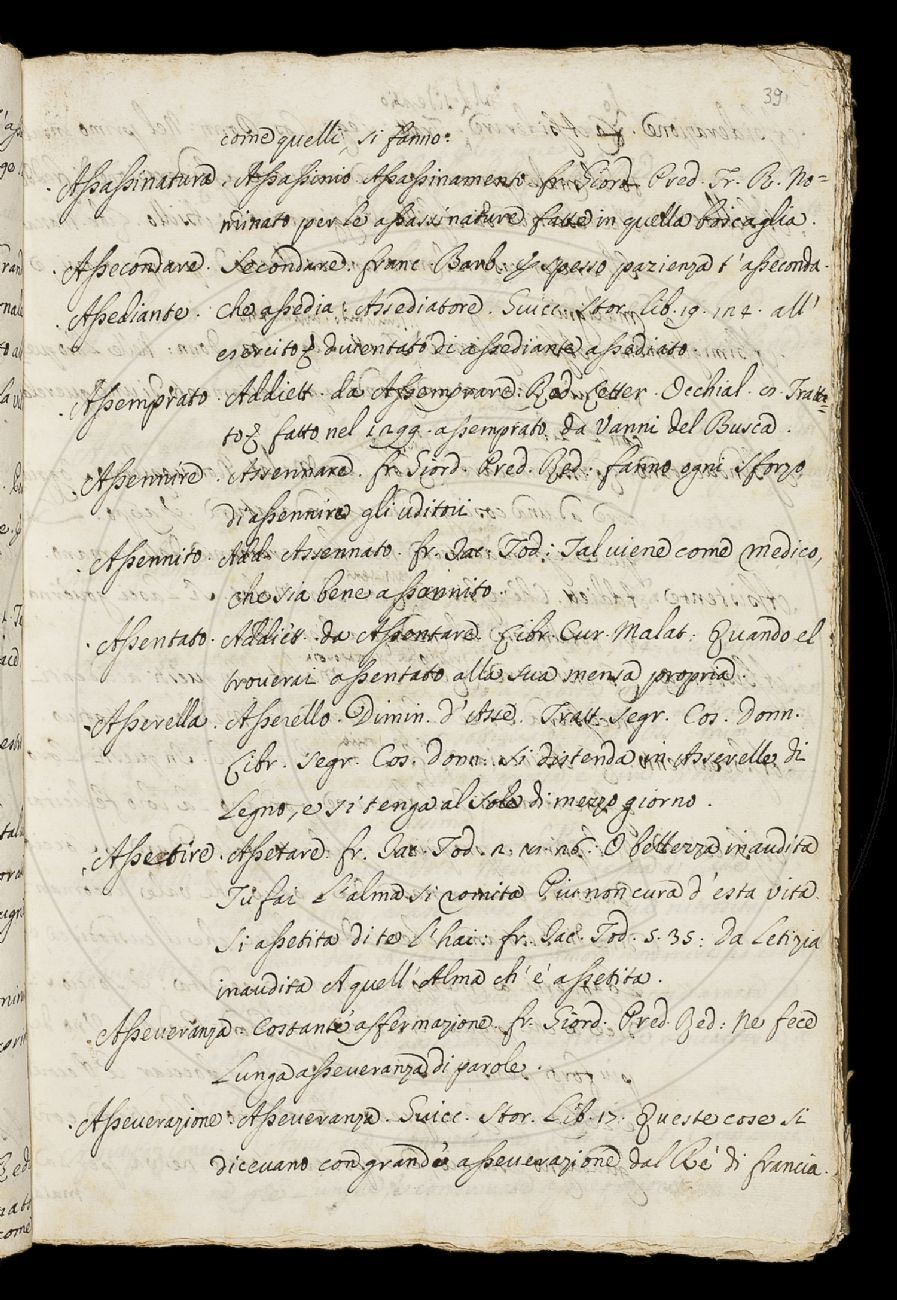 39
come quelli, si fanno:
Assassinatura. Assassinio Assassinamento. fr. Giord. Pred. Tr. R. No=
minato per le assassinature fatte in quella boscaglia.
Assecondare. Secondare. Franc. Barb: E spesso pazienza t'asseconda.
Assediante. Che assedia: Assediatore. Guicc. Stor. Lib. 19. in 4. all'
esercito diventato di assediante assediato
Assemprato. Addiett. da Assemprare: Red. Letter. Occhial. Tratta=
to fatto nel 1299. assemprato da Vanni del Busca.
Assennire. Assennare. fr. Giord. Pred. Red: fanno ogni sforzo
di assennire gli uditori
Assennito. Add. Assennato. fr. Jac: Tod: Tal viene come medico,
che sia bene assennito.
Assentato. Addiett. da Assentare. Libr. Cur. Malat: Quando el
troverai assentato alla sua mensa propria.
Asserella. Asserello. Dimin. d'Asse. Tratt. Segr. Cos. donn.
Libr. Segr. Cos. donn: si distenda in Asserelle di
Legno, e si tenga al Sole di mezzo giorno.
Assetire. Assetare. fr. Jac. Tod. O bellezza inaudita
Tu fai l'alma si romita Piu non cura d'esta vita
Si assetita di te l'hai: fr. Jac. Tod. 5. 35: Da Letizia
inaudita A quell'Alma ch'é assetita.
Asseveranza. Costante affermazione. fr. Giord: Pred. Red: Ne fece
Lunga asseveranza di parole.
Asseverazione: Asseveranza. Guicc. Stor. Lib. 17. Queste cose si
dicevano con grande asseverazione dal Ré di Francia.